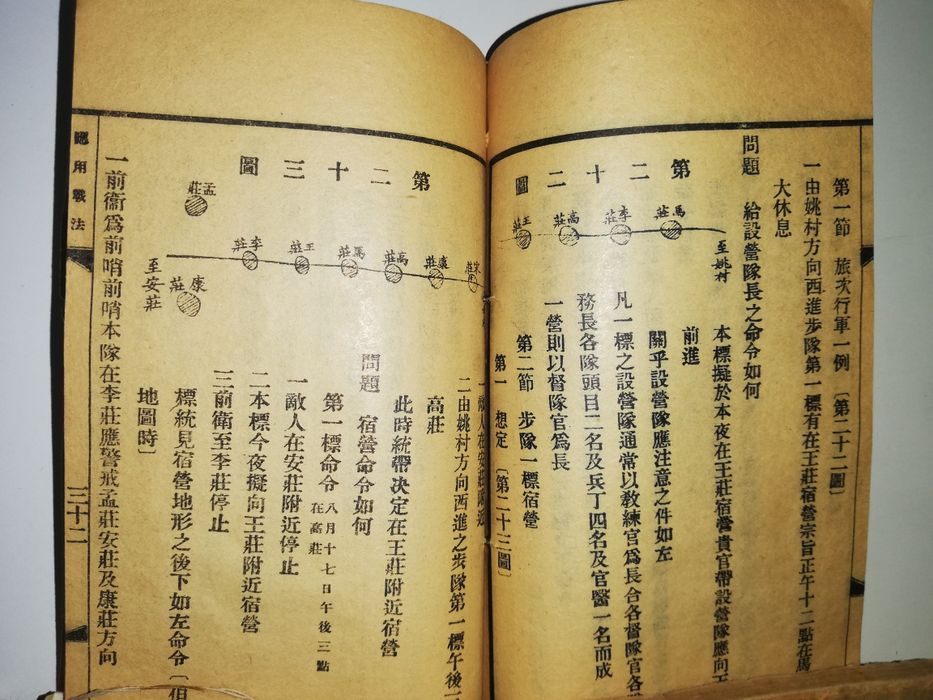 第一節 旅次行軍一例〔第二十二圖〕
一由姚村方向西進步隊第一標有在王莊宿營宗旨正午十二點在馬
大休息
問題 給設營隊長之命令如何
第二十二圖
至姚村
馬莊
李莊
高莊
王莊
本標擬於本夜在王莊宿營貴官帶設營隊應向王
前進
關乎設營隊應注意之件如左
凡一標之設營隊通常以教練官爲長合各督隊官各
務長各隊頭目二名及兵丁四名及官醫一名而成
一營則以督隊官爲長
第二節 步隊一標宿營
第一 想定〔第二十三圖〕
一敵人在安莊附近
二由姚村方向西進之步隊第一標午後
高莊
第二十三圖
康莊
高莊
馬莊
王莊
李莊
孟莊
康莊
至安莊
此時統帶决定在王莊附近宿營
問題 宿營命令如何
第一標命令 八月十七日午後三點在高莊
一敵人在安莊附近停止
二本標今夜擬向王莊附近宿營
三前衛至李莊停止
標統見宿營地形之後下如左命令〔但
地圖時〕
一前衛爲前哨前哨本隊在李莊應警戒孟莊安莊及康莊方向
應用戰法
三十二